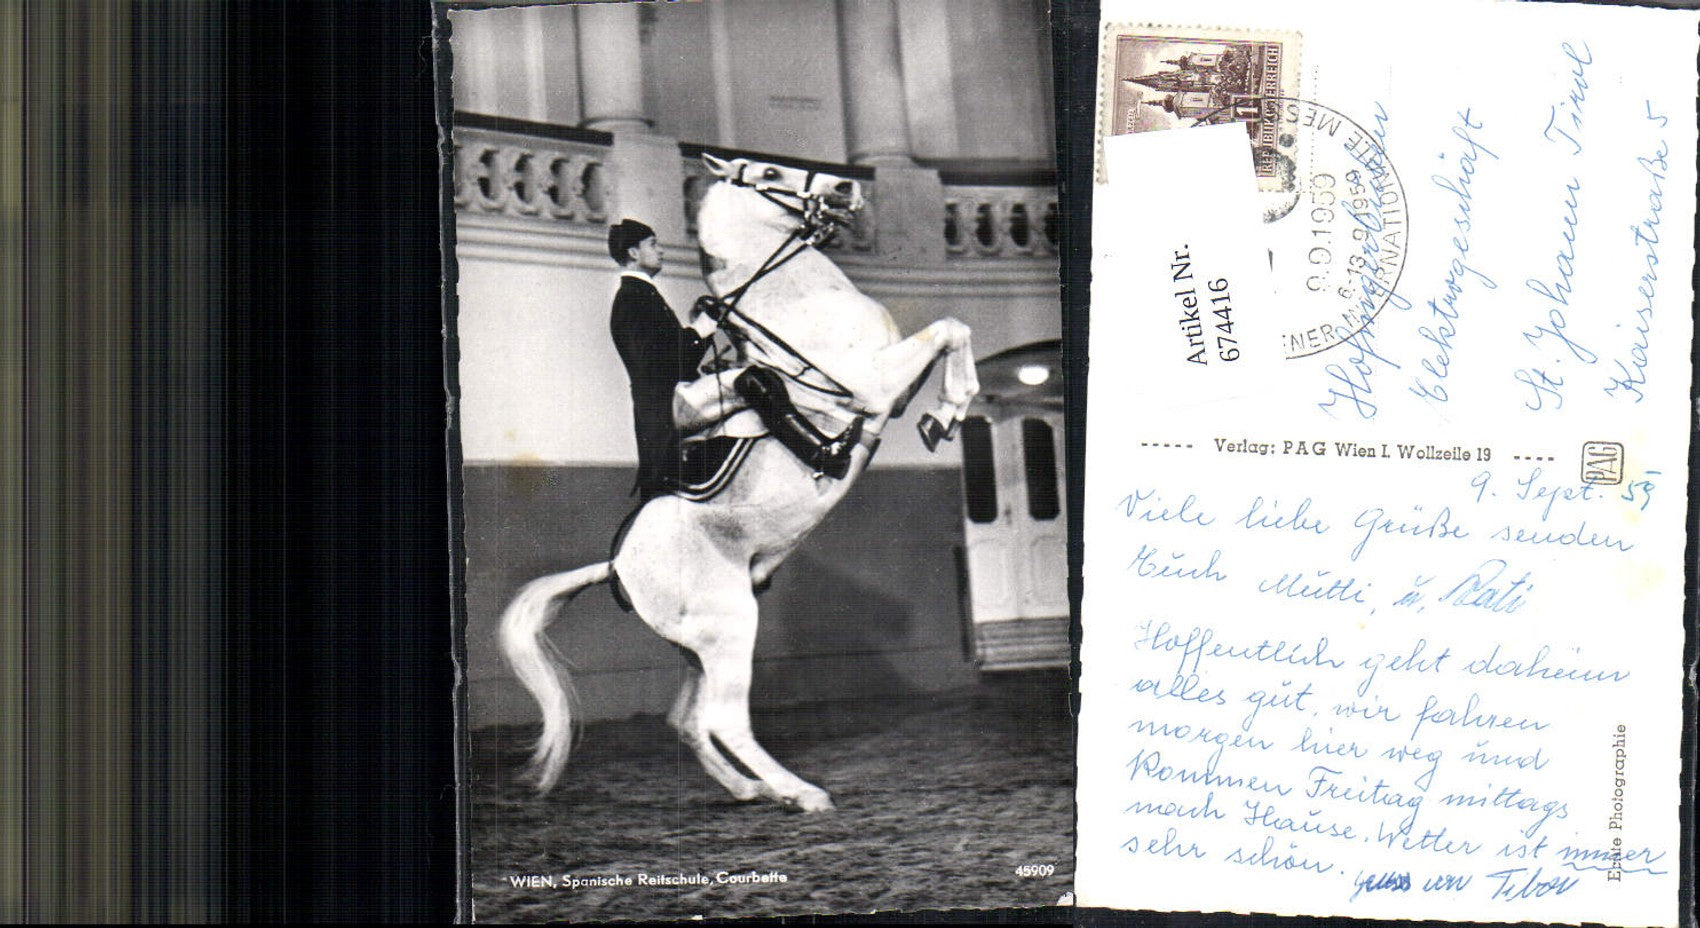 WIEN, Spanische Reitschule, Courbette
45909
REPUBLIK ÖSTERREICH
1
Artikel Nr.
674416
9.9.1959
6.-13.9.1959
Elektrogeschäft
St. Johann Tirol
Kaiserstraße 5
Verlag: PAG Wien I. Wollzeile 19
PAG
9. Sept. 59
Viele liebe Grüße senden
Euch Mutti, u.
Hoffentlich geht daheim
alles gut, wir fahren
morgen hier weg und
kommen Freitag mittags
nach Hause. Wetter ist immer
sehr schön.
von Tibor
Echte Photographie